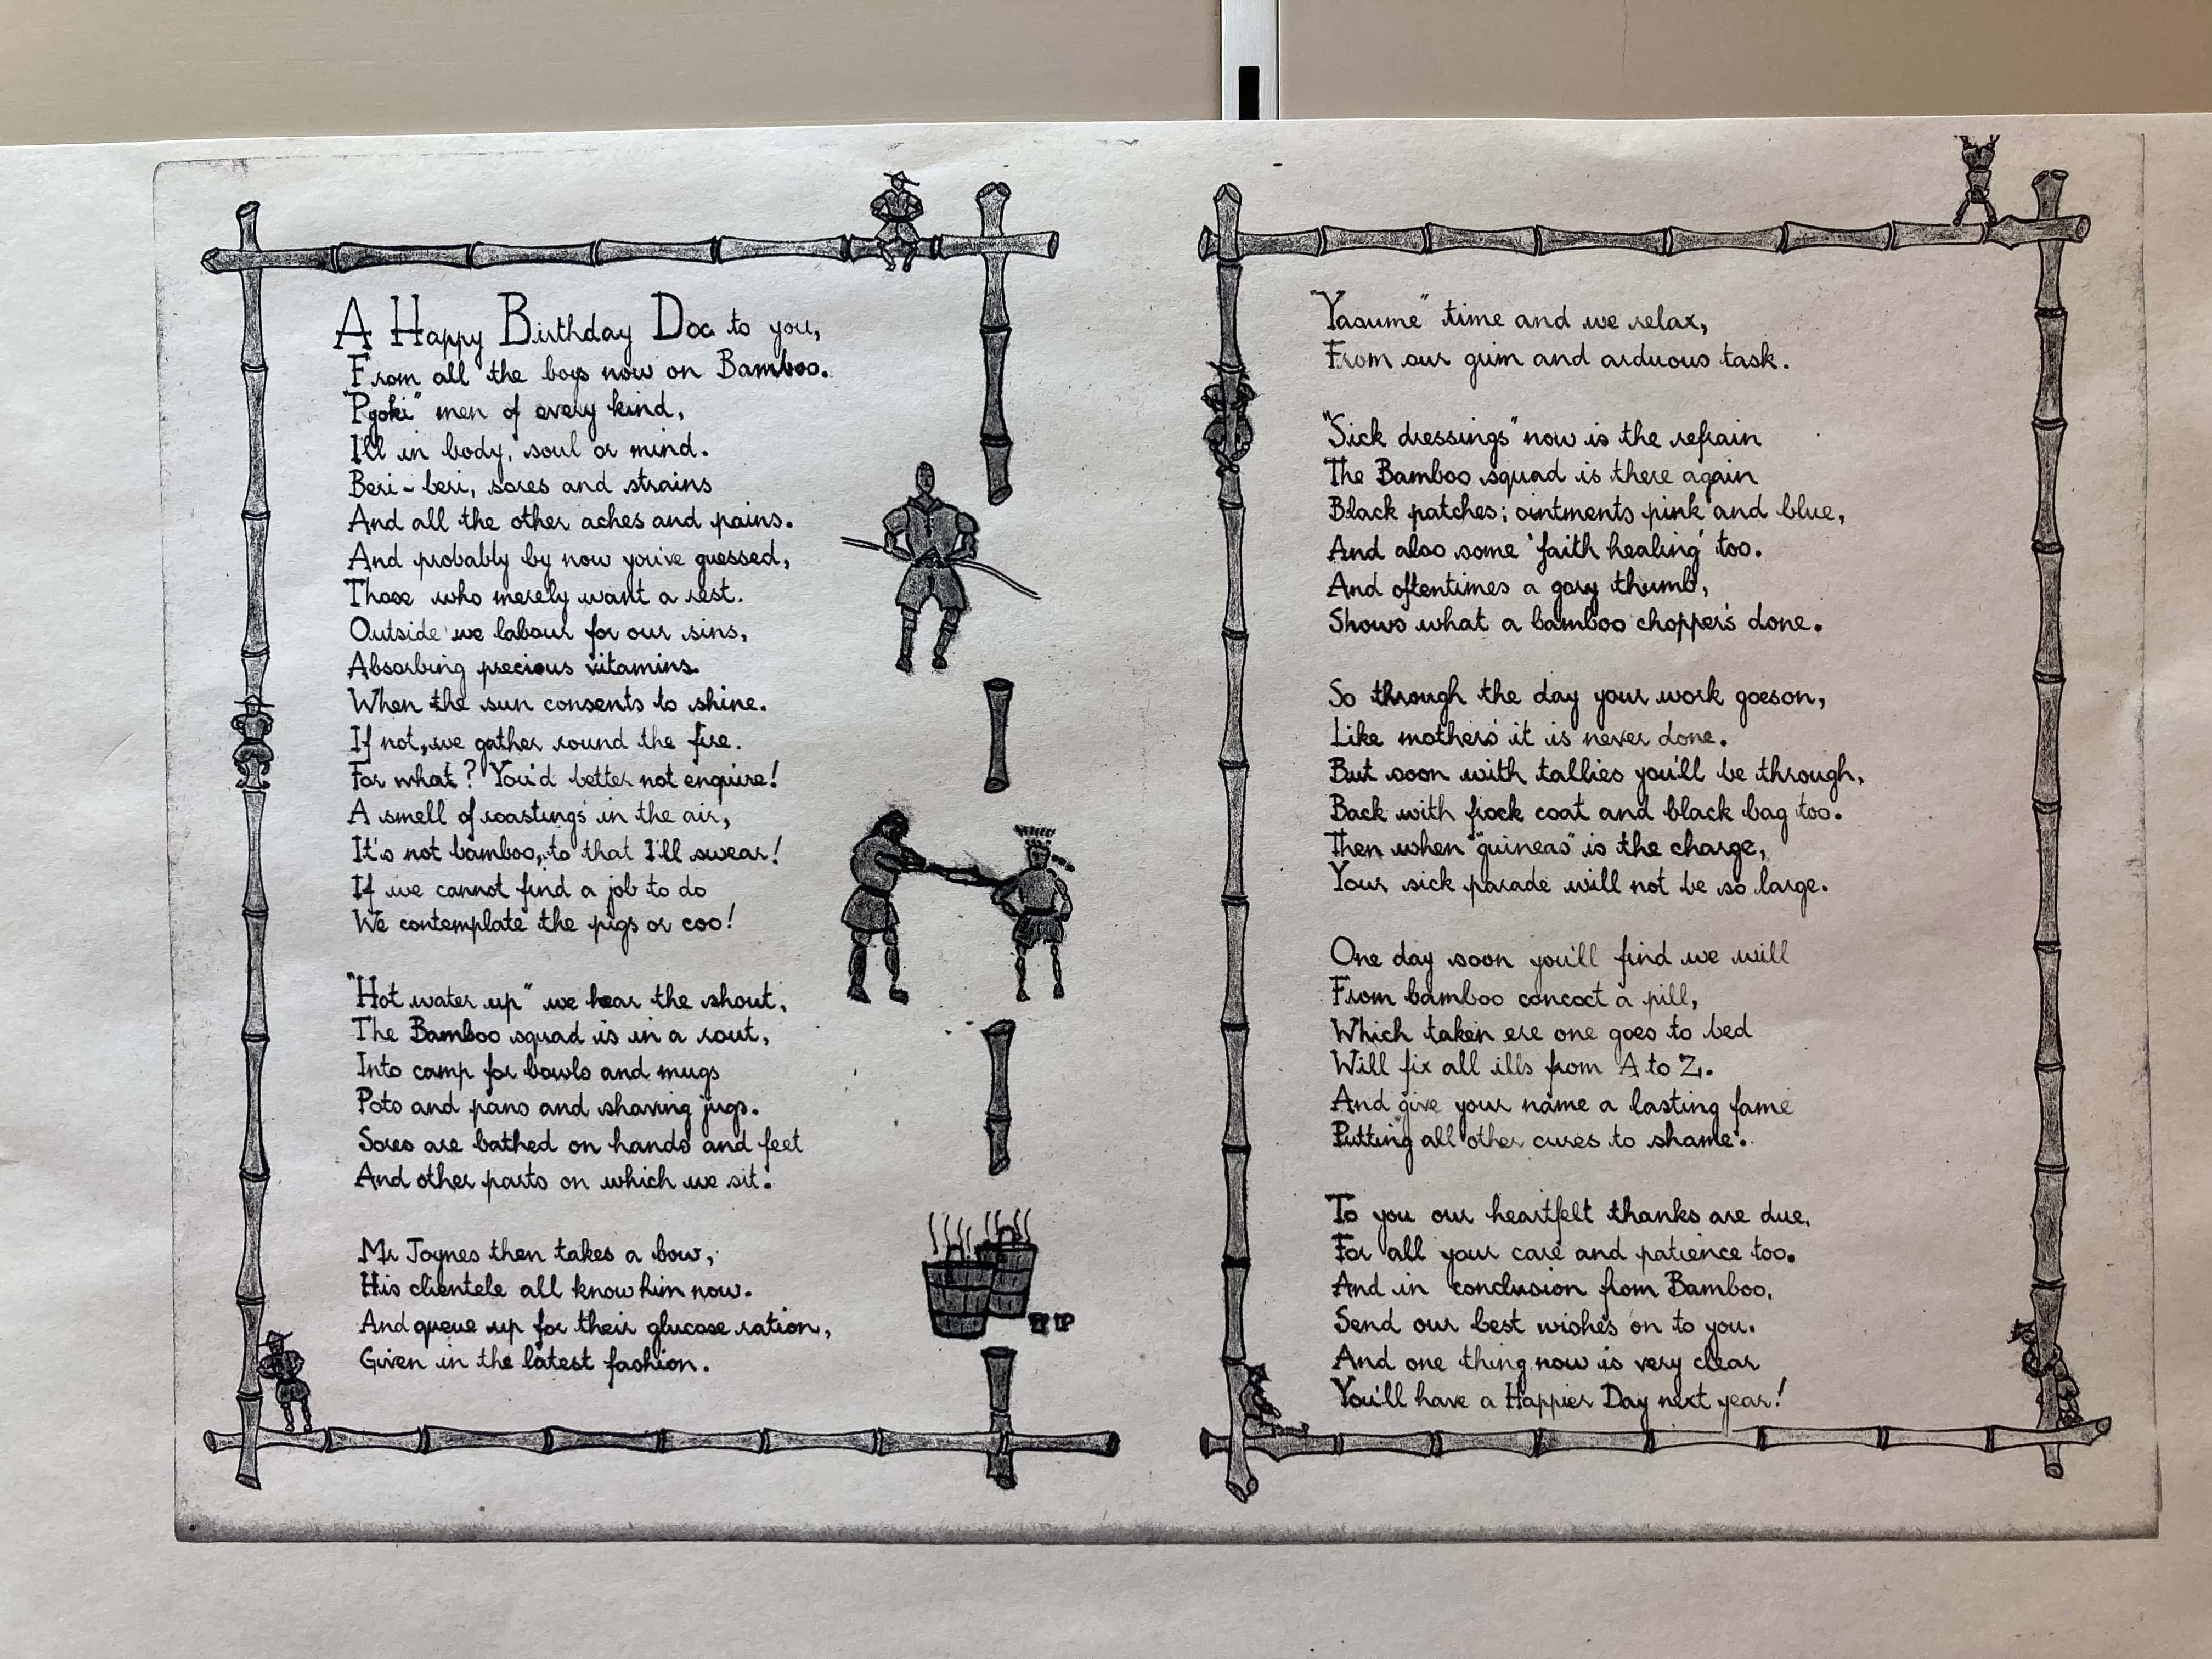 A Happy Birthday Doc to you,
From all the boys now on Bamboo.
"Pyoki" men of every kind,
Ill in body, soul or mind.
Beri-beri, sores and strains
And all the other aches and pains.
And probably by now you've guessed,
Those who merely want a rest.
Outside we labour for our sins,
Absorbing precious vitamins.
When the sun consents to shine.
If not, we gather round the fire.
For what? You'd better not enquire!
A smell of roasting's in the air,
It's not bamboo, to that I'll swear!
If we cannot find a job to do
We contemplate the pigs or coo!
"Hot water up" we hear the shout,
The Bamboo squad is in a rout,
Into camp for bowls and mugs
Pots and pans and shaving jugs.
Sores are bathed on hands and feet
And other parts on which we sit.
Mr Joynes then takes a bow,
His clientele all know him now.
And queue up for their glucose ration,
Given in the latest fashion.
"Yasume" time and we relax,
From our grim and arduous task.
"Sick dressings" now is the refrain
The Bamboo squad is there again
Black patches; ointments pink and blue,
And also some 'faith healing' too.
And oftentimes a gory thumb,
Shows what a bamboo chopper's done.
So through the day your work goes on,
Like mothers' it is never done.
But soon with tallies you'll be through,
Back with frock coat and black bag too.
Then when "guineas" is the charge,
Your sick parade will not be so large.
One day soon you'll find we will
From bamboo concoct a pill,
Which taken ere one goes to bed
Will fix all ills from A to Z.
And give your name a lasting fame
Putting all other cures to shame.
To you our heartfelt thanks are due,
For all your care and patience too.
And in conclusion from Bamboo,
Send our best wishes on to you.
And one thing now is very clear
You'll have a Happier Day next year!